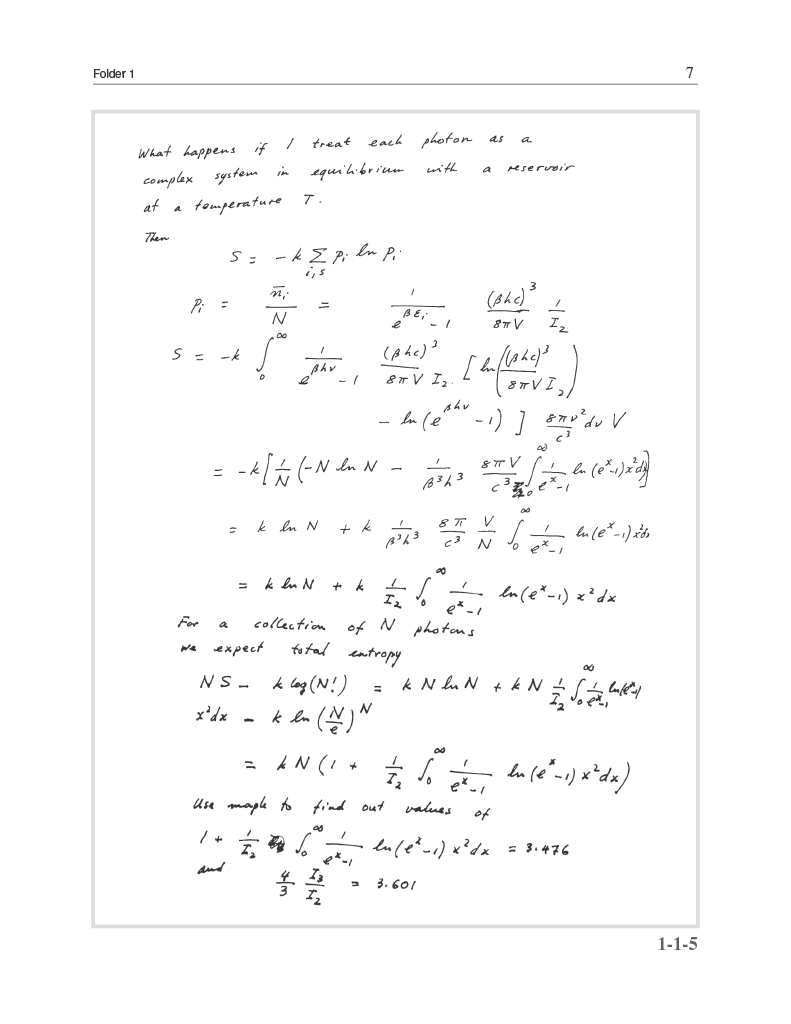 Folder 1 7
What happens if I treat each photon as a
complex system in equilibrium with a reservoir
at a temperature T.
Then
S = - k Σ_{i,s} p_i ln p_i
p_i = n̄_i / N = 1/(e^{βE_i} - 1) (βhc)^3/(8πV) 1/I_2
S = -k ∫_0^∞ 1/(e^{βhν} - 1) (βhc)^3/(8πV I_2) [ ln( (βhc)^3/(8πV I_2) )
- ln(e^{βhν} - 1) ] 8πν^2dν/c^3 V
= -k [ 1/N (-N ln N - 1/(β^3h^3) 8πV/c^3 ∫_0^∞ 1/(e^x-1) ln(e^x-1)x^2dx ]
= k ln N + k 1/(β^3h^3) 8π/c^3 V/N ∫_0^∞ 1/(e^x-1) ln(e^x-1)x^2dx
= k ln N + k 1/I_2 ∫_0^∞ 1/(e^x-1) ln(e^x-1) x^2dx
For a collection of N photons
we expect total entropy
NS - k log(N!) = k N ln N + k N 1/I_2 ∫_0^∞ 1/(e^x-1) ln(e^x-1)
x^2dx - k ln (N/e)^N
= kN(1 + 1/I_2 ∫_0^∞ 1/(e^x-1) ln(e^x-1) x^2dx)
Use maple to find out values of
1 + 1/I_2 ∫_0^∞ 1/(e^x-1) ln(e^x-1) x^2dx = 3.476
and
4/3 I_3/I_2 = 3.601
1-1-5